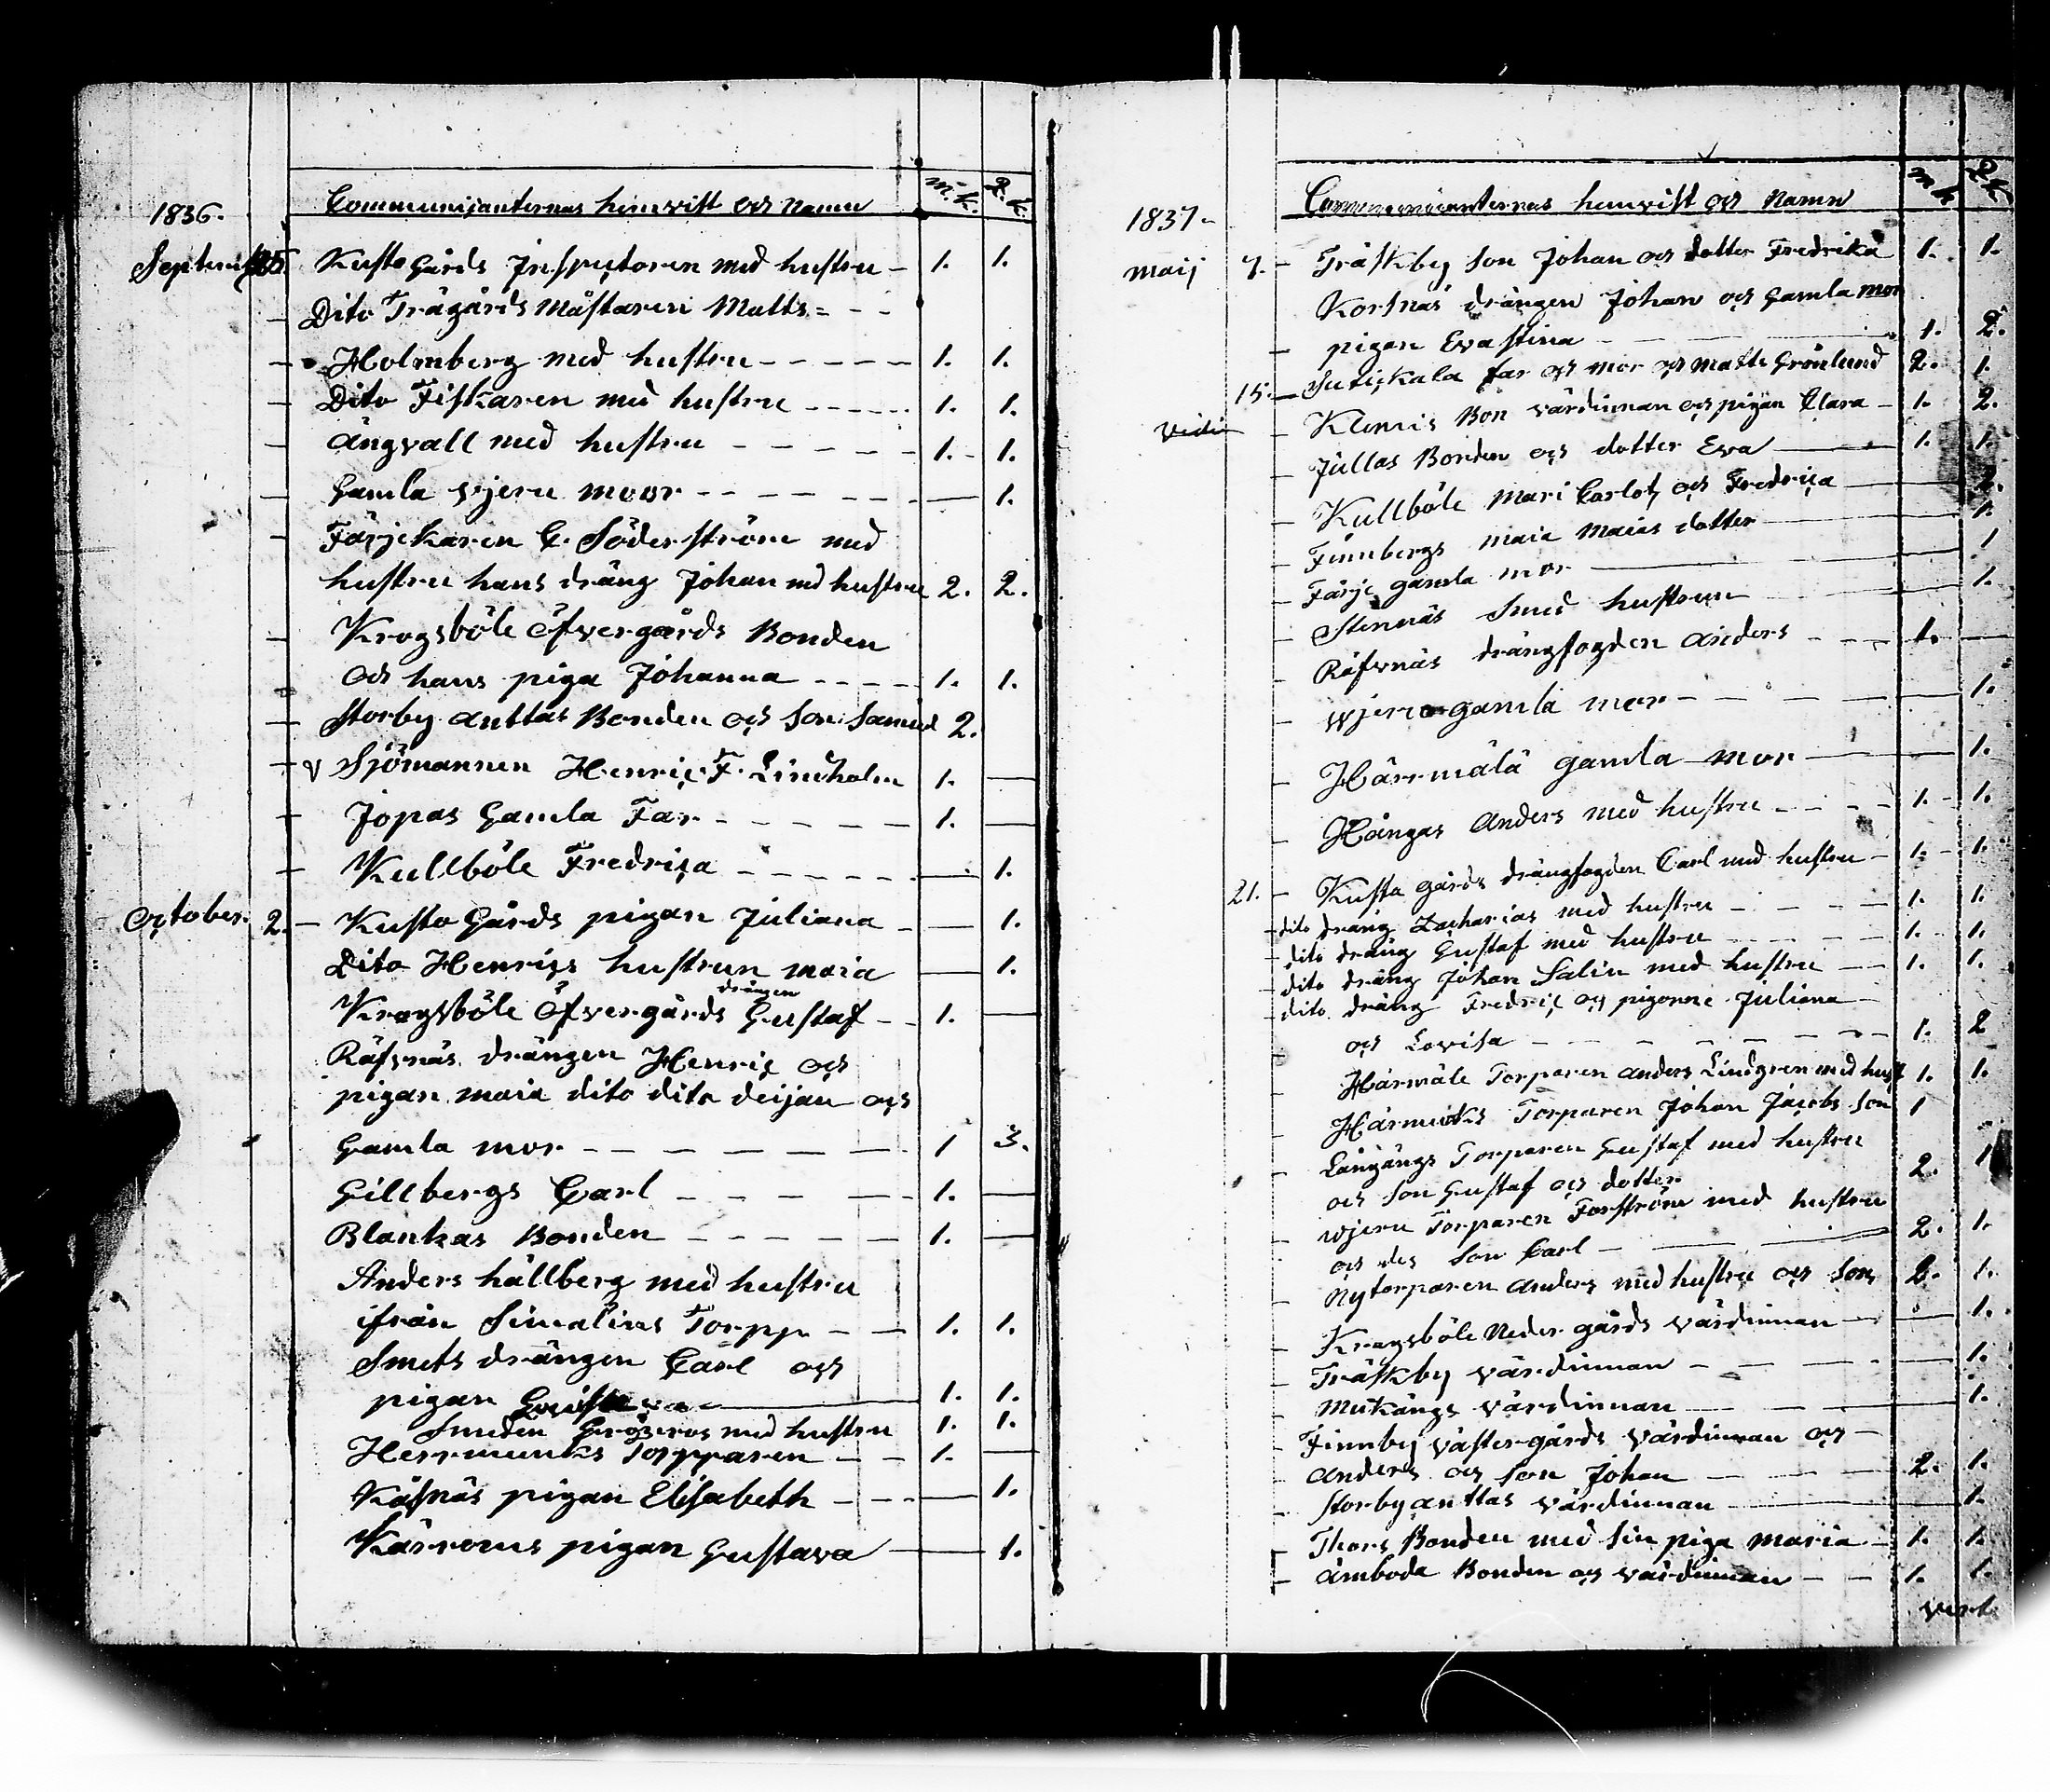 Communijanternas hemvist och Namn m. k. Q. k.
1836.
Septemb. 25. Kusto Gårds Inspectoren med hustru - 1. 1.
Dito Trägårds Mästaren Matts = - -
Holmberg med hustru - - - - - 1. 1.
Dito Fiskaren med hustru - - - - - 1. 1.
ängvall med hustru - - - - - 1. - 1.
Gamla wjeru moor - - - - - - — 1.
Färjekaren C. Söderström med
hustru hans dräng Johan md hustru 2. 2.
Krogsböle Öfvergårds Bonden
och hans piga Johanna - - - - 1. 1.
Storby anttas Bonden och Son Samuel 2.
v Sjömannen Henric F. Lindholm 1. —
Jopas Gamla Far - - - - - 1. —
Kullböle Fredrica - - - - - — 1.
October. 2. - Kusto Gårds pigan Juliana - — 1.
Dito Henrics hustrun maia — 1.
drängen
Krogsböle Öfvergårds Gustaf - - 1. —
Räfsnäs drängen Henric och
pigan maia dito dito deijan och
Gamla mor - - - - - - 1 3.
Gillbergs Carl - - - - 1. —
Blankas Bonden - - - - - 1. —
Anders hällberg med hustru
ifrån Simalins Torpp - - 1. 1.
Smeds drängen Carl och
pigan — 1. 1.
Smeden med hustru 1. 1.
Herrmunks Torpparen - - 1. —
Käsnäs pigan Elisabeth - - - — 1.
Kärroms pigan Gustava — 1.
Communicanternas hemvist och Namn m k Q k.
1837.
maij 7. - Träskby Son Johan och dotter Fredrika 1. 1.
Korsnäs drängen Johan och Gamla mor
pigan Eva Stina - - - 1. 2.
15. - far och mor och Matts Grönlund 2. 1.
Klemis Bon värdinnan och pigan Clara - 1. 2.
Jullas Bonden och dotter Eva — 1. 1.
Kullböle Mari Carlot, och Fredrica — 2.
Finnbergs maia Maias dotter — 1.
Färje gamla mor — 1
Stennäs Smed hustrun 1.
Räfsnäs drängfogden anders - - - 1. —
wjeru gamla mor - - - - — 1.
Härmälä gamla mor — 1.
Hångas Anders med hustru - - - - 1. - 1.
21. - Kusta gårds drängfogden Carl med hustru - 1. - 1.
dito dräng Zacharias med hustru - - - - 1. 1.
dito dräng Gustaf med hustru - - - - 1. 1.
dito dräng Johan Salin med hustru - - 1. 1.
dito dräng Fredric och pigorne Juliana -
och Lovisa - - - - - - - 1. 2
Härmäle Torparen anders Lindgren med hust 1. 1.
Härmunks Torparen Johan Jacobs Son 1
Långängs Torparen Gustaf med hustru
och Son Gustaf och dotter 2. 1
wjeru Torparen Forström med hustru
och des Son Carl - - - 2. 1.
Nytorparen anders med hustru och Son 2. 1.
Krogsböle Neder gårds värdinnan - — 1.
Träskby värdinnan - - - - — 1.
Mukängs värdinnan - - - - 1.
Finnby västergårds värdinnan och -
anders och Son Johan - - - 2. 1.
Storby anttas värdinnan — 1.
Thors Bonden med sin piga maria - 1. 1.
åmboda Bonden och värdinnan - - 1. 1.